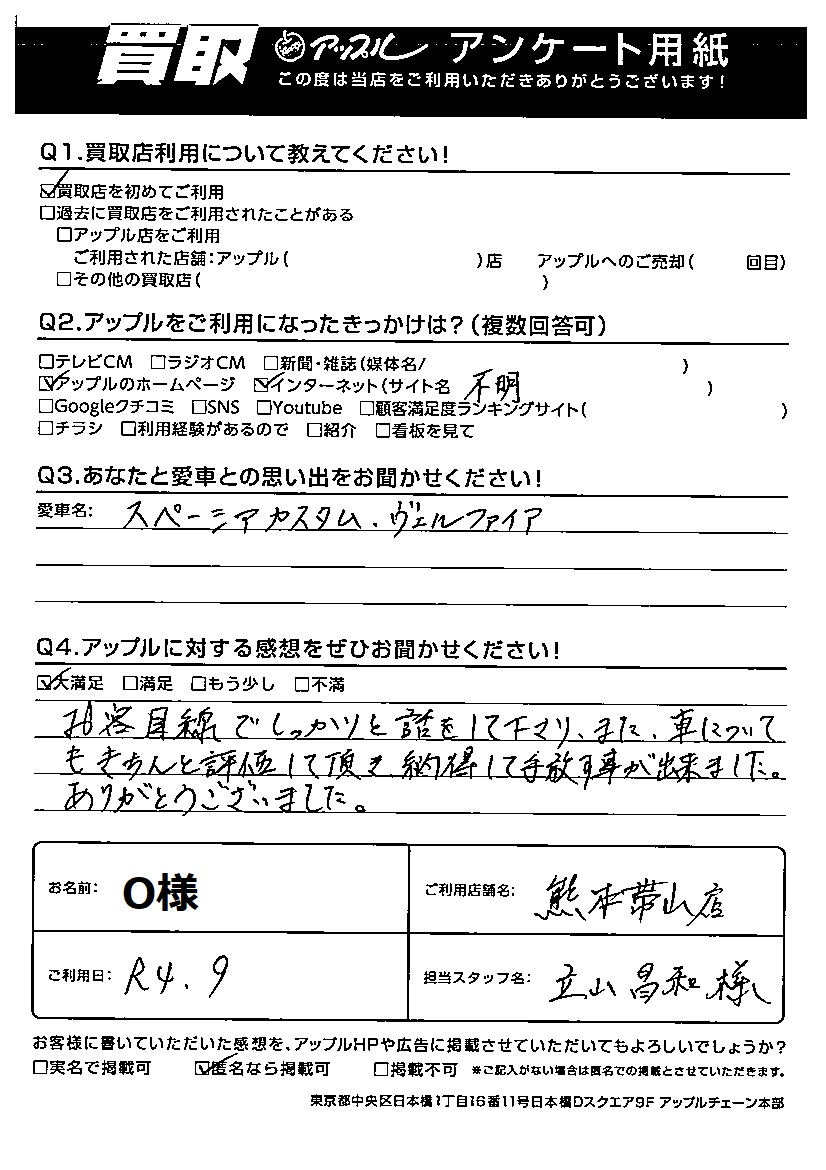 買取 アップル アンケート用紙
この度は当店をご利用いただきありがとうございます!
Q1.買取店利用について教えてください!
☑買取店を初めてご利用
□過去に買取店をご利用されたことがある
□アップル店をご利用
ご利用された店舗:アップル( )店 アップルへのご売却( 回目)
□その他の買取店( )
Q2.アップルをご利用になったきっかけは?(複数回答可)
□テレビCM □ラジオCM □新聞・雑誌(媒体名/ )
☑アップルのホームページ ☑インターネット(サイト名 不明 )
□Googleクチコミ □SNS □Youtube □顧客満足度ランキングサイト( )
□チラシ □利用経験があるので □紹介 □看板を見て
Q3.あなたと愛車との思い出をお聞かせください!
愛車名: スペーシアカスタム、ヴェルファイア
Q4.アップルに対する感想をぜひお聞かせください!
☑大満足 □満足 □もう少し □不満
お客目線でしっかりと話をして下さり、また、車について
もきちんと評価して頂き納得して手放す事が出来ました。
ありがとうございました。
お名前: O様
ご利用店舗名: 熊本帯山店
ご利用日: R4.9
担当スタッフ名: 立山昌和様
お客様に書いていただいた感想を、アップルHPや広告に掲載させていただいてもよろしいでしょうか?
□実名で掲載可 ☑匿名なら掲載可 □掲載不可 ※ご記入がない場合は匿名での掲載とさせていただきます。
東京都中央区日本橋1丁目16番11号日本橋Dスクエア9F アップルチェーン本部